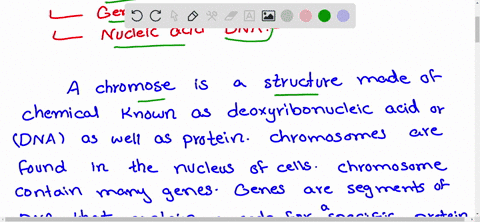 Ger
Nucleic acid DNA.
A chromose is a structure made of
chemical known as deoxyribonucleic acid or
(DNA) as well as protein. chromosomes are
found in the nucleus of cells. chromosome
contain many genes. Genes are segments of
a